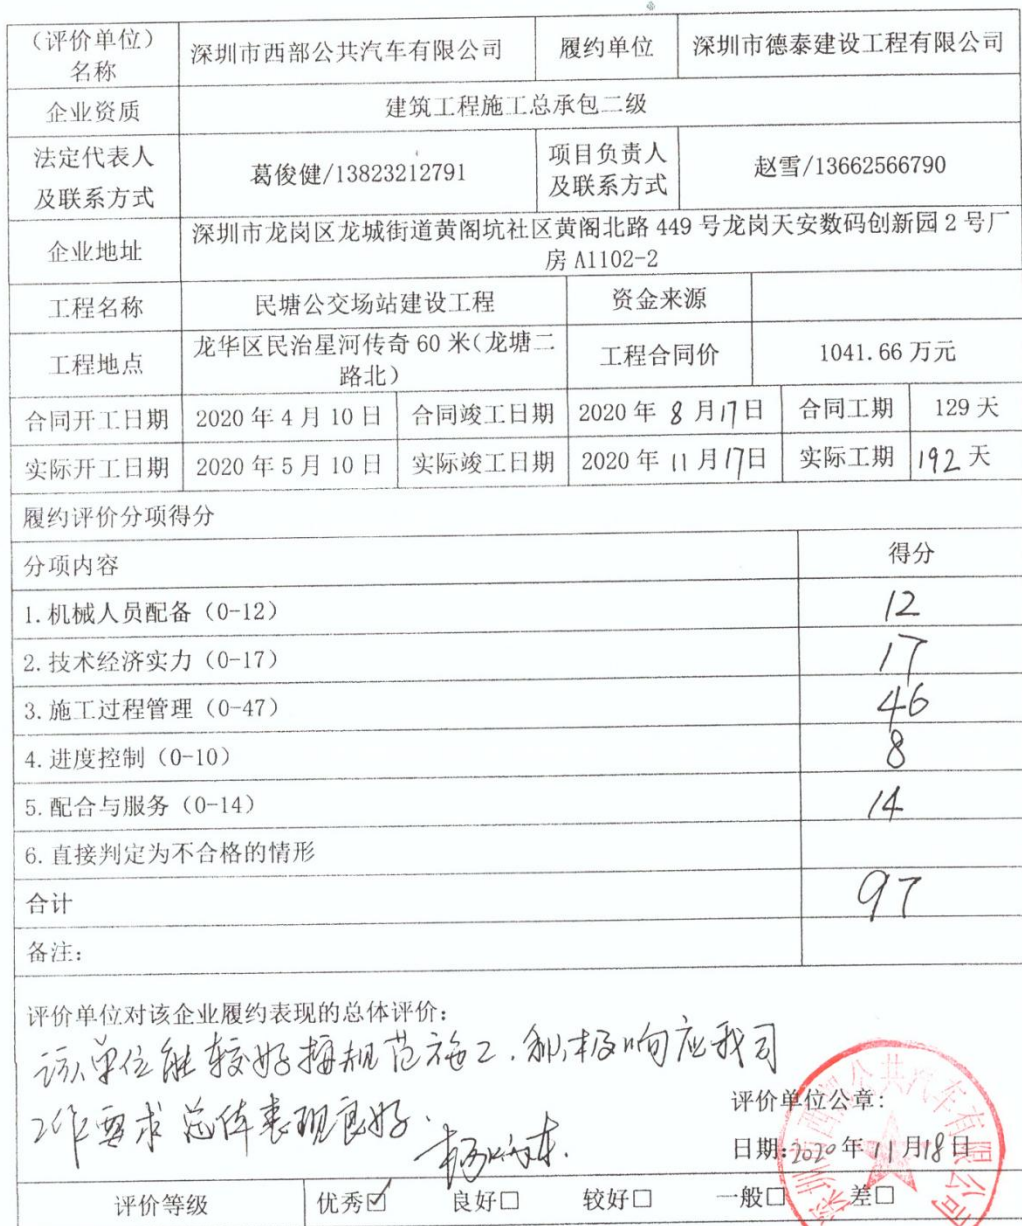 （评价单位）名称 深圳市西部公共汽车有限公司 履约单位 深圳市德泰建设工程有限公司
企业资质 建筑工程施工总承包二级
法定代表人及联系方式 葛俊健/13823212791 项目负责人及联系方式 赵雪/13662566790
企业地址 深圳市龙岗区龙城街道黄阁坑社区黄阁北路 449 号龙岗天安数码创新园 2 号厂房 A1102-2
工程名称 民塘公交场站建设工程 资金来源
工程地点 龙华区民治星河传奇 60 米（龙塘二路北） 工程合同价 1041.66 万元
合同开工日期 2020 年 4 月 10 日 合同竣工日期 2020 年 8 月 17 日 合同工期 129 天
实际开工日期 2020 年 5 月 10 日 实际竣工日期 2020 年 11 月 17 日 实际工期 192 天
履约评价分项得分
分项内容 得分
1.机械人员配备（0-12） 12
2.技术经济实力（0-17） 17
3.施工过程管理（0-47） 46
4.进度控制（0-10） 8
5.配合与服务（0-14） 14
6.直接判定为不合格的情形
合计 97
备注：
评价单位对该企业履约表现的总体评价：
该单位能较好按规范施工，积极响应我司
工作要求总体表现良好.
评价单位公章：
日期：2020 年 11 月 18 日
评价等级 优秀☑ 良好□ 较好□ 一般□ 差□